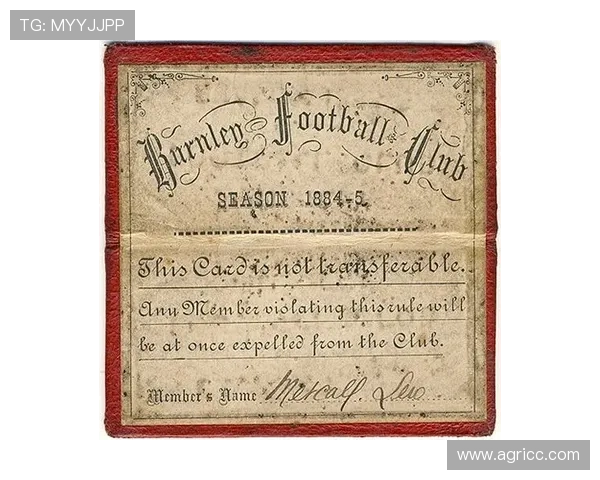 TG: MYYJJPP
Burnley Football Club
SEASON 1884-5
This Card is not transferable.
Any Member violating this rule will
be at once expelled from the Club.
Member's Name Metcalf.
www.agricc.com